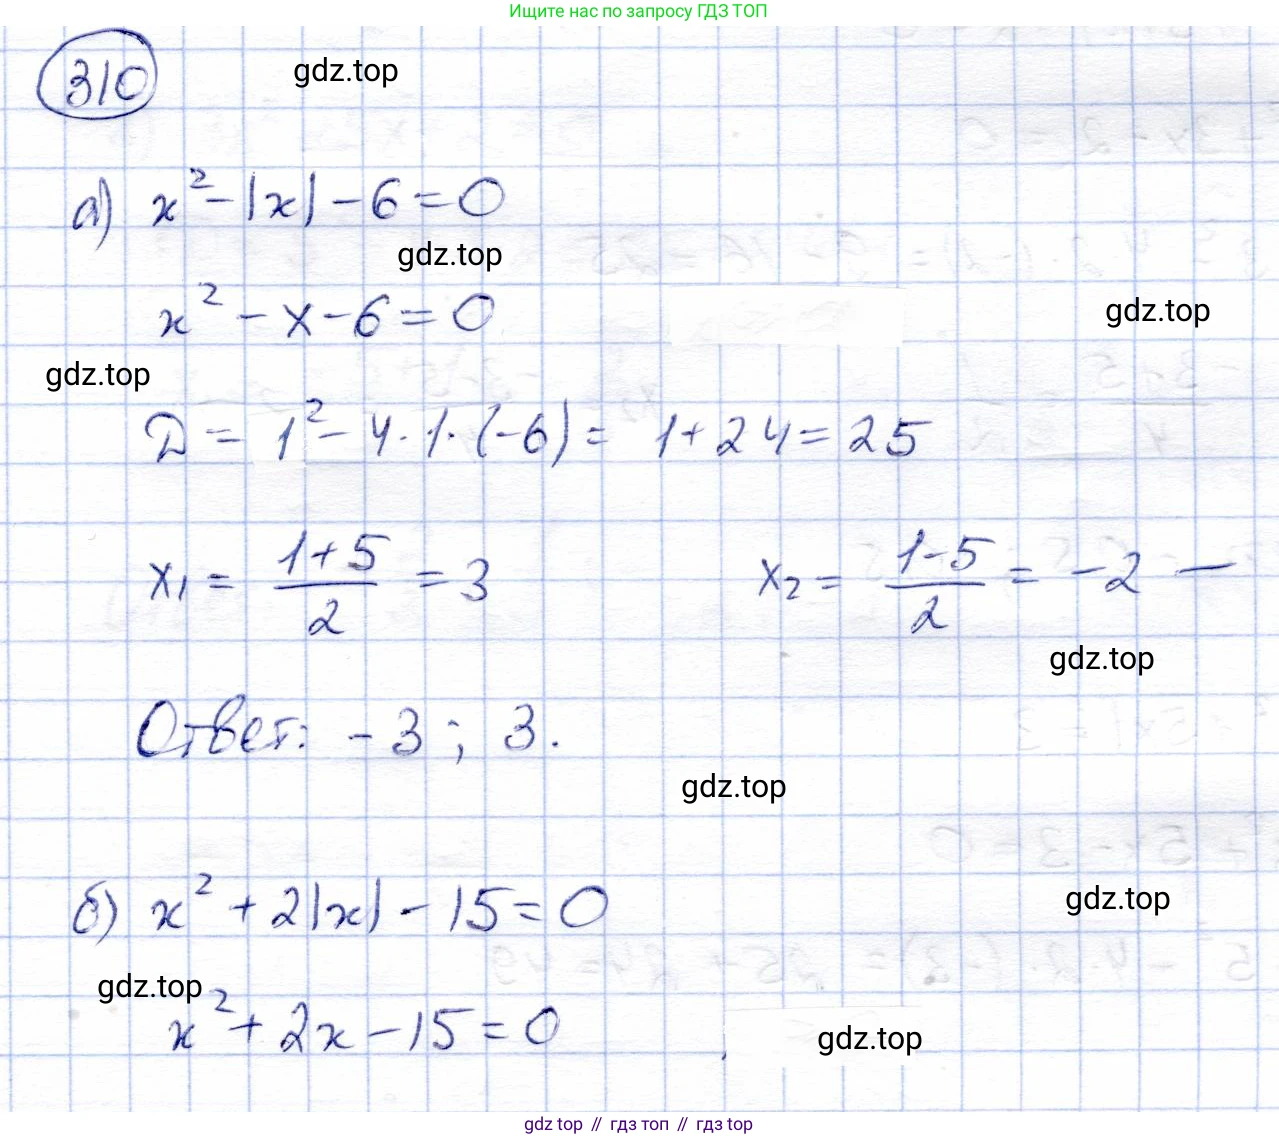 Ищите нас по запросу ГДЗ ТОП
310
gdz.top
а) x² - |x| - 6 = 0
gdz.top
x² - x - 6 = 0
gdz.top
gdz.top
D = 1² - 4 · 1 · (-6) = 1 + 24 = 25
x₁ = (1+5)/2 = 3 x₂ = (1-5)/2 = -2 —
gdz.top
Ответ: -3; 3.
gdz.top
б) x² + 2|x| - 15 = 0
gdz.top
gdz.top
x² + 2x - 15 = 0
gdz.top
gdz top // гдз топ // гдз top